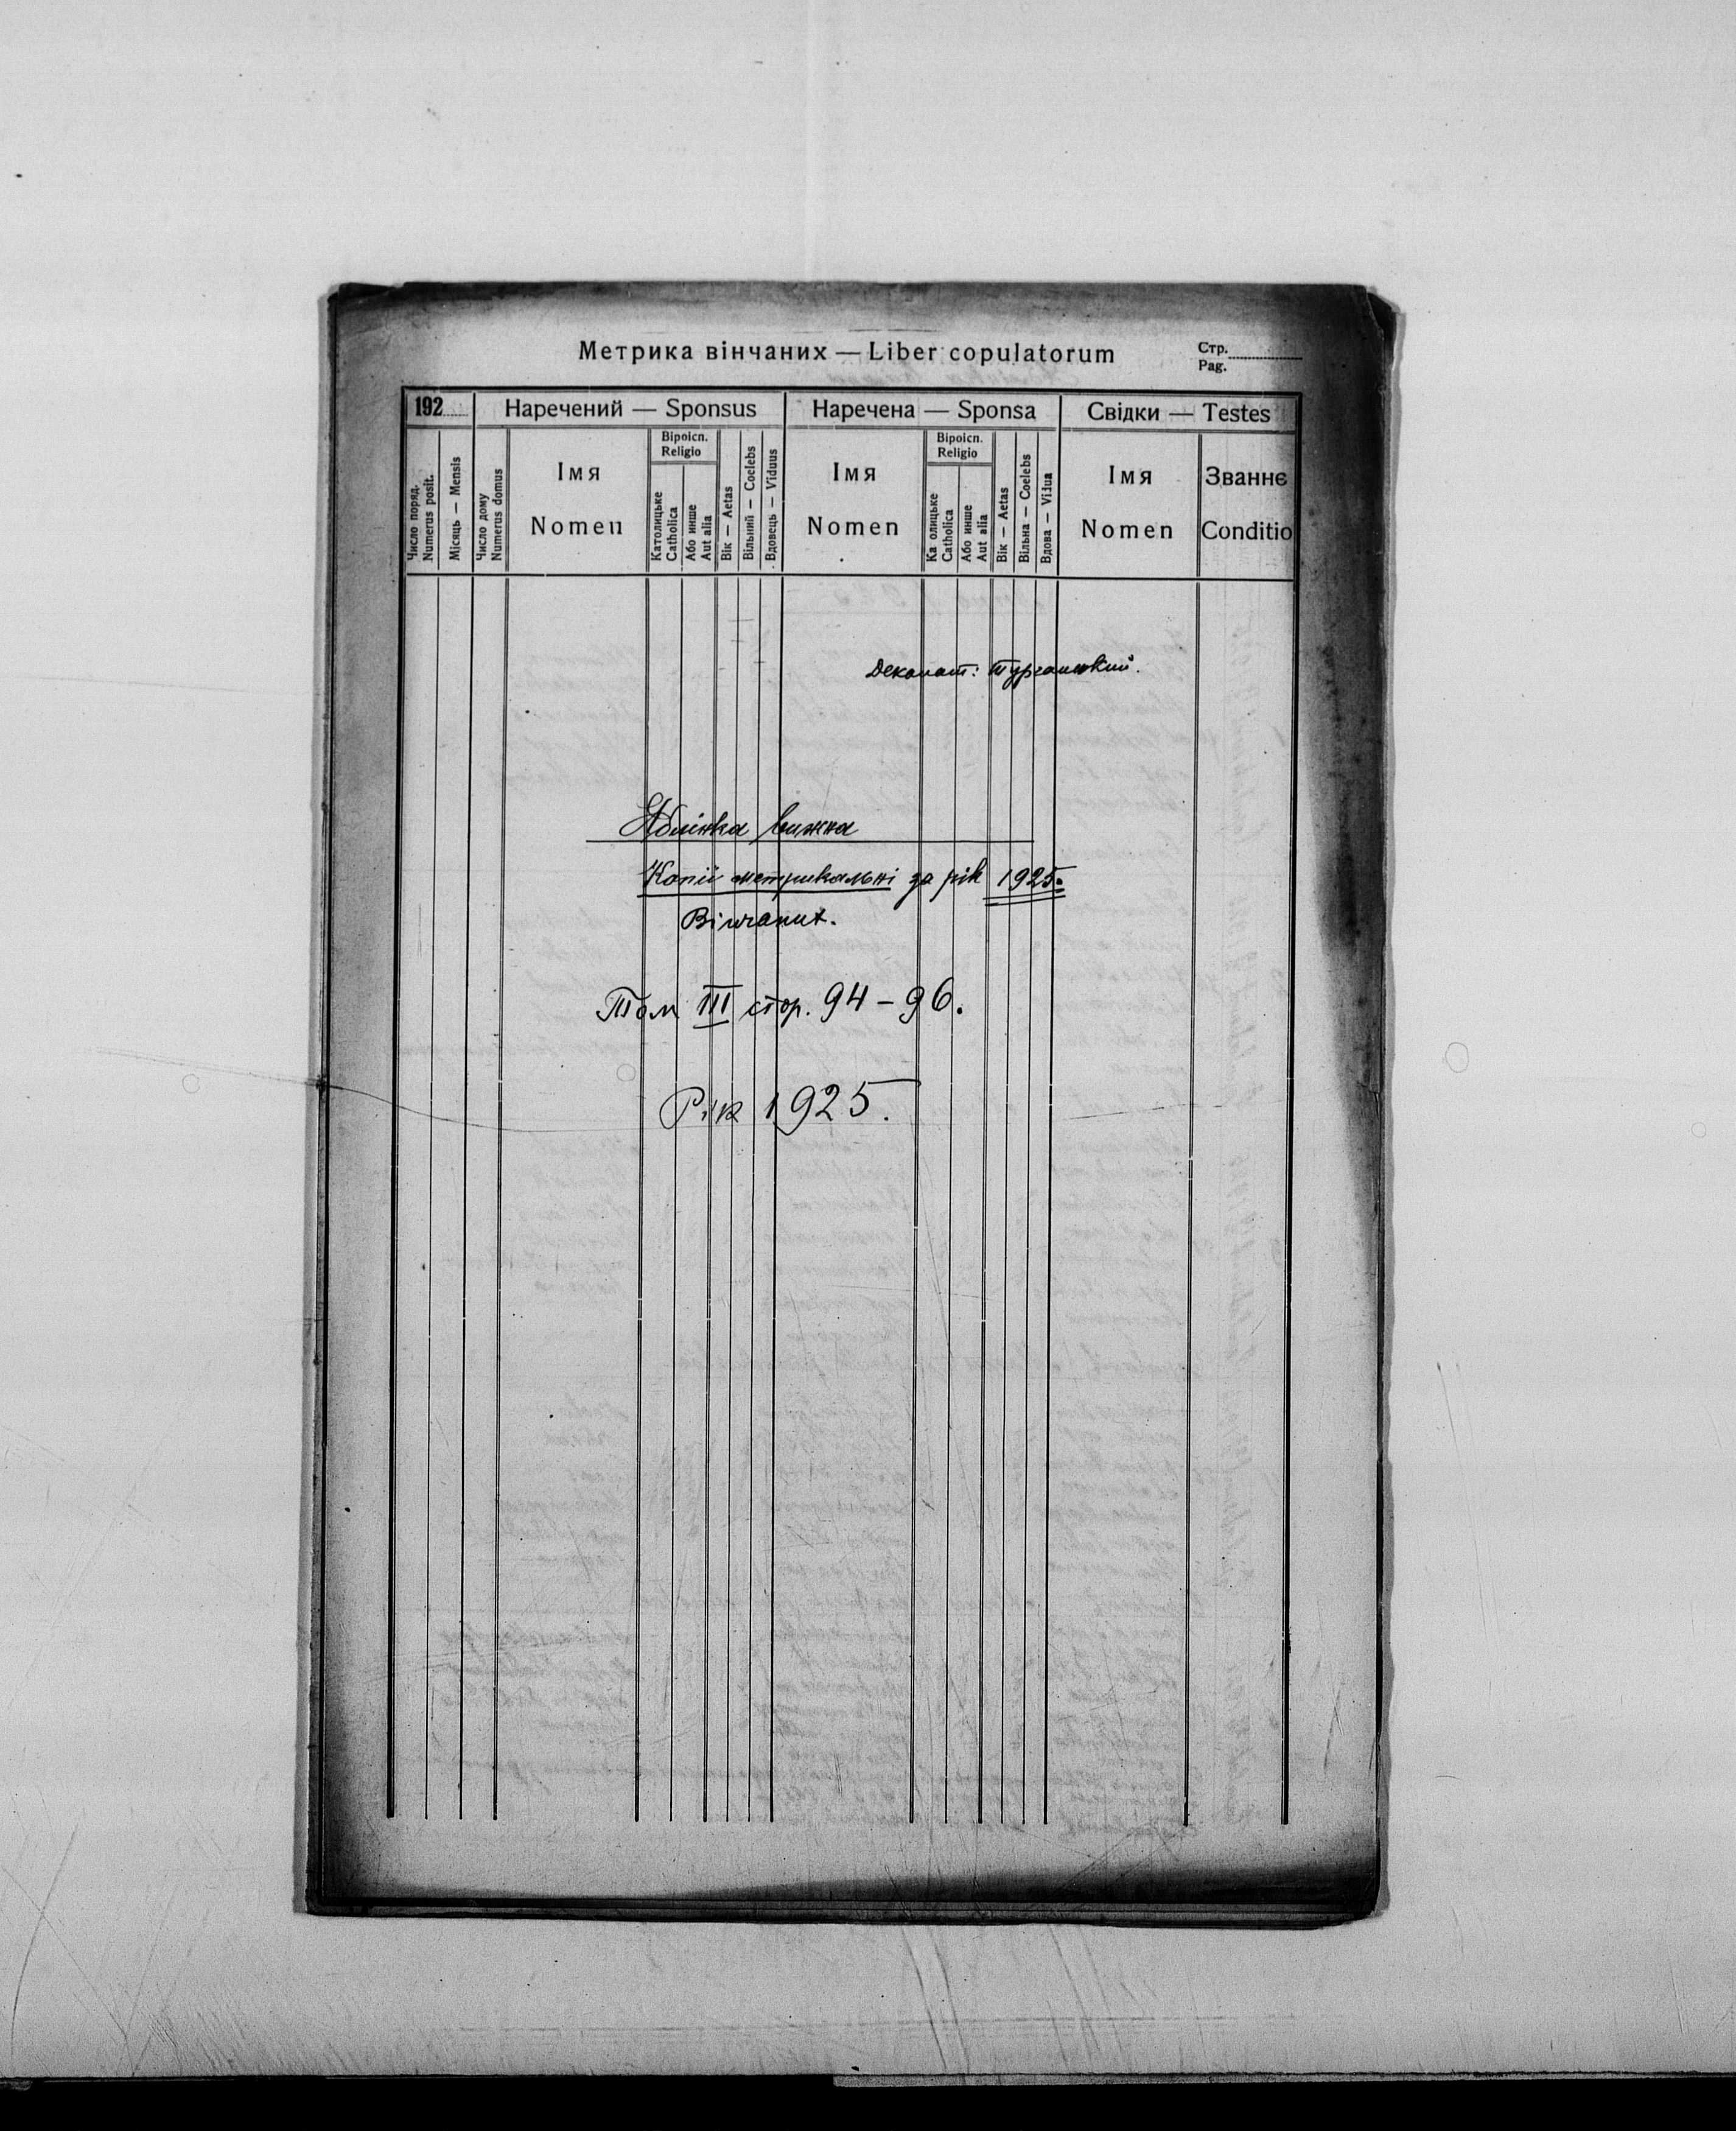 Метрика вінчаних — Liber copulatorum
Стр.
Pag.
192
Наречений — Sponsus
Наречена — Sponsa
Свідки — Testes
Число поряд.
Numerus posit.
Місяць — Mensis
Число дому
Numerus domus
Імя
Nomen
Віроісп.
Religio
Католицьке
Catholica
Або инше
Aut alia
Вік — Aetas
Вільний — Coelebs
Вдовець — Viduus
Імя
Nomen
Віроісп.
Religio
Ка олицьке
Catholica
Або инше
Aut alia
Вік — Aetas
Вільна — Coelebs
Вдова — Vidua
Імя
Nomen
Званнє
Conditio
Деканат: Турчанський.
Яблінка вижна
Копії метрикальні за рік 1925.
Вінчаних.
Том III стор. 94 – 96.
Рік 1925.